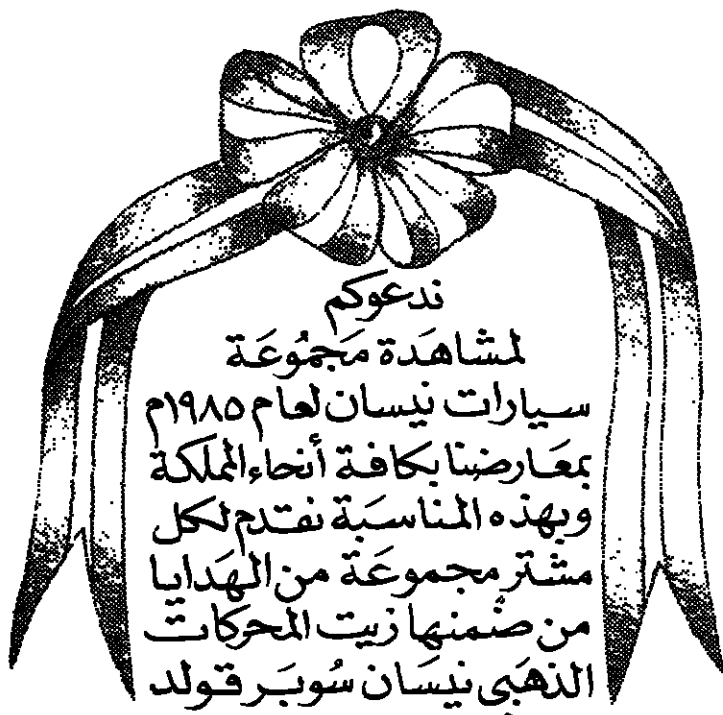 ندعوكم
لمشاهَدة مَجمُوعَة
سيارات نيسان لعام ١٩٨٥م
بمعَارضنا بكافة أنحاء المملكة
وبهذه المناسَبة نقدم لكل
مشتر مجموعَة من الهَدايا
من ضمنها زيت المحركات
الذهَبى نيسَان سُوبَر قولد